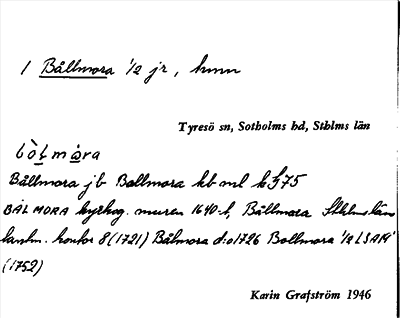 1 Bållmora ½ jr, hmn
Tyresö sn, Sotholms hd, Sthlms län
bòḷmȧra
Bållmora jb Bollmora hb ml k §75
BÅL MORA kyrkog. muren 1640-t, Bållmora Sthlms läns
lantm. kontor 8 (1721) Bålmora d:o 1726 Bollmora ½ LSAM
(1752)
Karin Grafström 1946